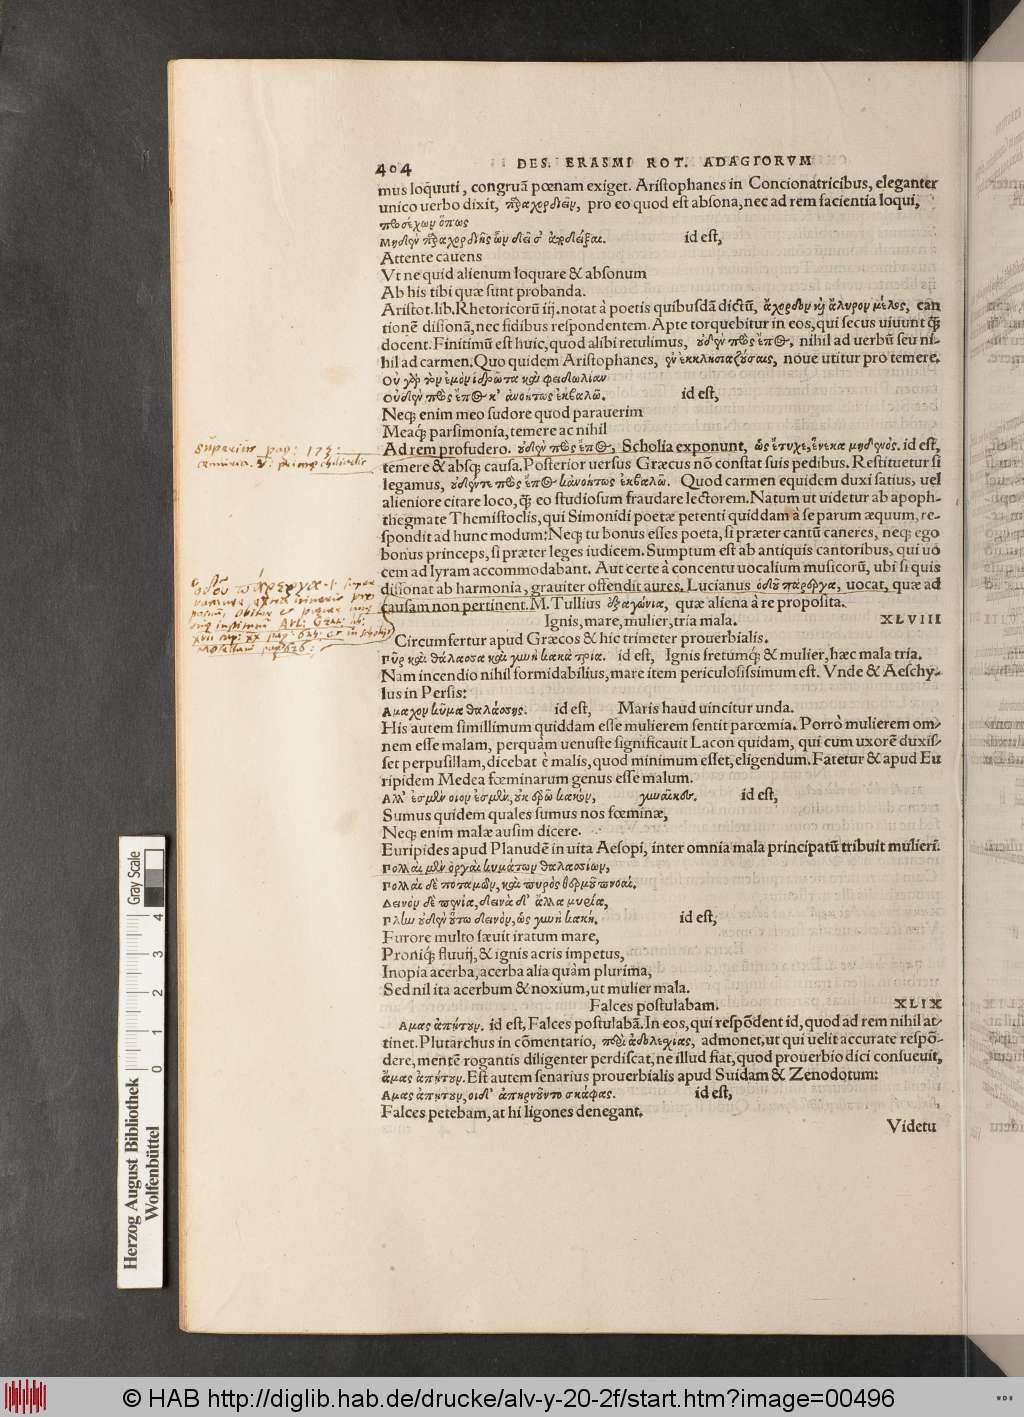 404 DES. ERASMI ROT. ADAGIORVM
mus loq̃uuti, congruã pœnam exiget. Aristophanes in Concionatricibus, eleganter
unico uerbo dixit, παραχορδιεῖν, pro eo quod est absona, nec ad rem facientia loqui,
προσέχων ὅπως
Μηδὲν παραχορδιῇς ὧν δεῖ σ' ἀποδεῖξαι. id est,
Attente cauens
Vt ne quid alienum loquare & absonum
Ab his tibi quæ sunt probanda.
Aristot. lib. Rhetoricorũ iij. notat à poetis quibusdã dictũ, ἄχορδον καὶ ἄλυρον μέλος, can
tionẽ dissonã, nec fidibus respondentem. Apte torquebitur in eos, qui secus uiuunt q̃
docent. Finitimũ est huic, quod alibi retulimus, οὐδὲν πρὸς ἔπος, nihil ad uerbũ seu ni-
hil ad carmen. Quo quidem Aristophanes, ἐν ἐκκλησιαζούσαις, noue utitur pro temere.
Οὐ γὰρ τὸν ἐμὸν ἱδρῶτα καὶ φειδωλίαν
Οὐδὲν πρὸς ἔπος κ' ἀνοήτως ἐκβαλῶ. id est,
Neq; enim meo sudore quod parauerim
Meaq; parsimonia, temere ac nihil
Ad rem profudero. οὐδὲν πρὸς ἔπος, Scholia exponunt, ὡς ἔτυχε, ἕνεκα μηδενός. id est,
superius pag: 175:
temere & absq; causa. Posterior uersus Græcus nõ constat suis pedibus. Restituetur si
legamus, οὐδέν τε πρὸς ἔπος κἀνοήτως ἐκβαλῶ. Quod carmen equidem duxi satius, uel
alieniore citare loco, q̃; eo studiosum fraudare lectorem. Natum ut uidetur ab apoph-
thegmate Themistoclis, qui Simonidi poetæ petenti quiddam à se parum æquum, re-
spondit ad hunc modum: Neq; tu bonus esses poeta, si præter cantũ caneres, neq; ego
bonus princeps, si præter leges iudicem. Sumptum est ab antiquis cantoribus, qui uo
cem ad lyram accommodabant. Aut certe à concentu uocalium musicorũ, ubi si quis
dissonat ab harmonia, grauiter offendit aures. Lucianus ὁδοῦ πάρεργα, uocat, quæ ad
causam non pertinent. M. Tullius ἐξαγώνια, quæ aliena à re proposita.
ὁδοῦ πάρεργα
Ignis, mare, mulier, tria mala. XLVIII
Circumfertur apud Græcos & hic trimeter prouerbialis.
Πῦρ καὶ θάλασσα καὶ γυνὴ κακὰ τρία. id est, Ignis fretumq́; & mulier, hæc mala tria.
Nam incendio nihil formidabilius, mare item periculosissimum est. Vnde & Aeschy-
lus in Persis:
Αμαχον κῦμα θαλάσσης. id est, Maris haud uincitur unda.
His autem simillimum quiddam esse mulierem sentit parœmia. Porrò mulierem om-
nem esse malam, perquàm uenuste significauit Lacon quidam, qui cum uxorẽ duxis-
set perpusillam, dicebat è malis, quod minimum esset, eligendum. Fatetur & apud Eu
ripidem Medea fœminarum genus esse malum.
Αλλ' ἐσμὲν οἷον ἐσμέν, οὐκ ἐρῶ κακόν, γυναῖκες. id est,
Sumus quidem quales sumus nos fœminæ,
Neq; enim malæ ausim dicere.
Euripides apud Planudẽ in uita Aesopi, inter omnia mala principatũ tribuit mulieri.
Πολλαὶ μὲν ὀργαὶ κυμάτων θαλασσίων,
Πολλαὶ δὲ ποταμῶν, καὶ πυρὸς θερμοῦ πνοαί.
Δεινὸν δὲ πενία, δεινὰ δ' ἄλλα μυρία,
Πλὴν οὐδὲν οὕτω δεινόν, ὡς γυνὴ κακή. id est,
Furore multo sæuit iratum mare,
Proniq́; fluuij, & ignis acris impetus,
Inopia acerba, acerba alia quàm plurima,
Sed nil ita acerbum & noxium, ut mulier mala.
Falces postulabam. XLIX
Αμας ἀπῄτουν. id est, Falces postulabã. In eos, qui respõdent id, quod ad rem nihil at-
tinet. Plutarchus in cõmentario, περὶ ἀδολεσχίας, admonet, ut qui uelit accurate respõ-
dere, mentẽ rogantis diligenter perdiscat, ne illud fiat, quod prouerbio dici consueuit,
ἄμας ἀπῄτουν. Est autem senarius prouerbialis apud Suidam & Zenodotum:
Αμας ἀπῄτουν, οἱ δ' ἀπηρνοῦντο σκάφας. id est,
Falces petebam, at hi ligones denegant.
Videtu
Gray Scale
0 1 2 3 4
Herzog August Bibliothek
Wolfenbüttel
© HAB http://diglib.hab.de/drucke/alv-y-20-2f/start.htm?image=00496